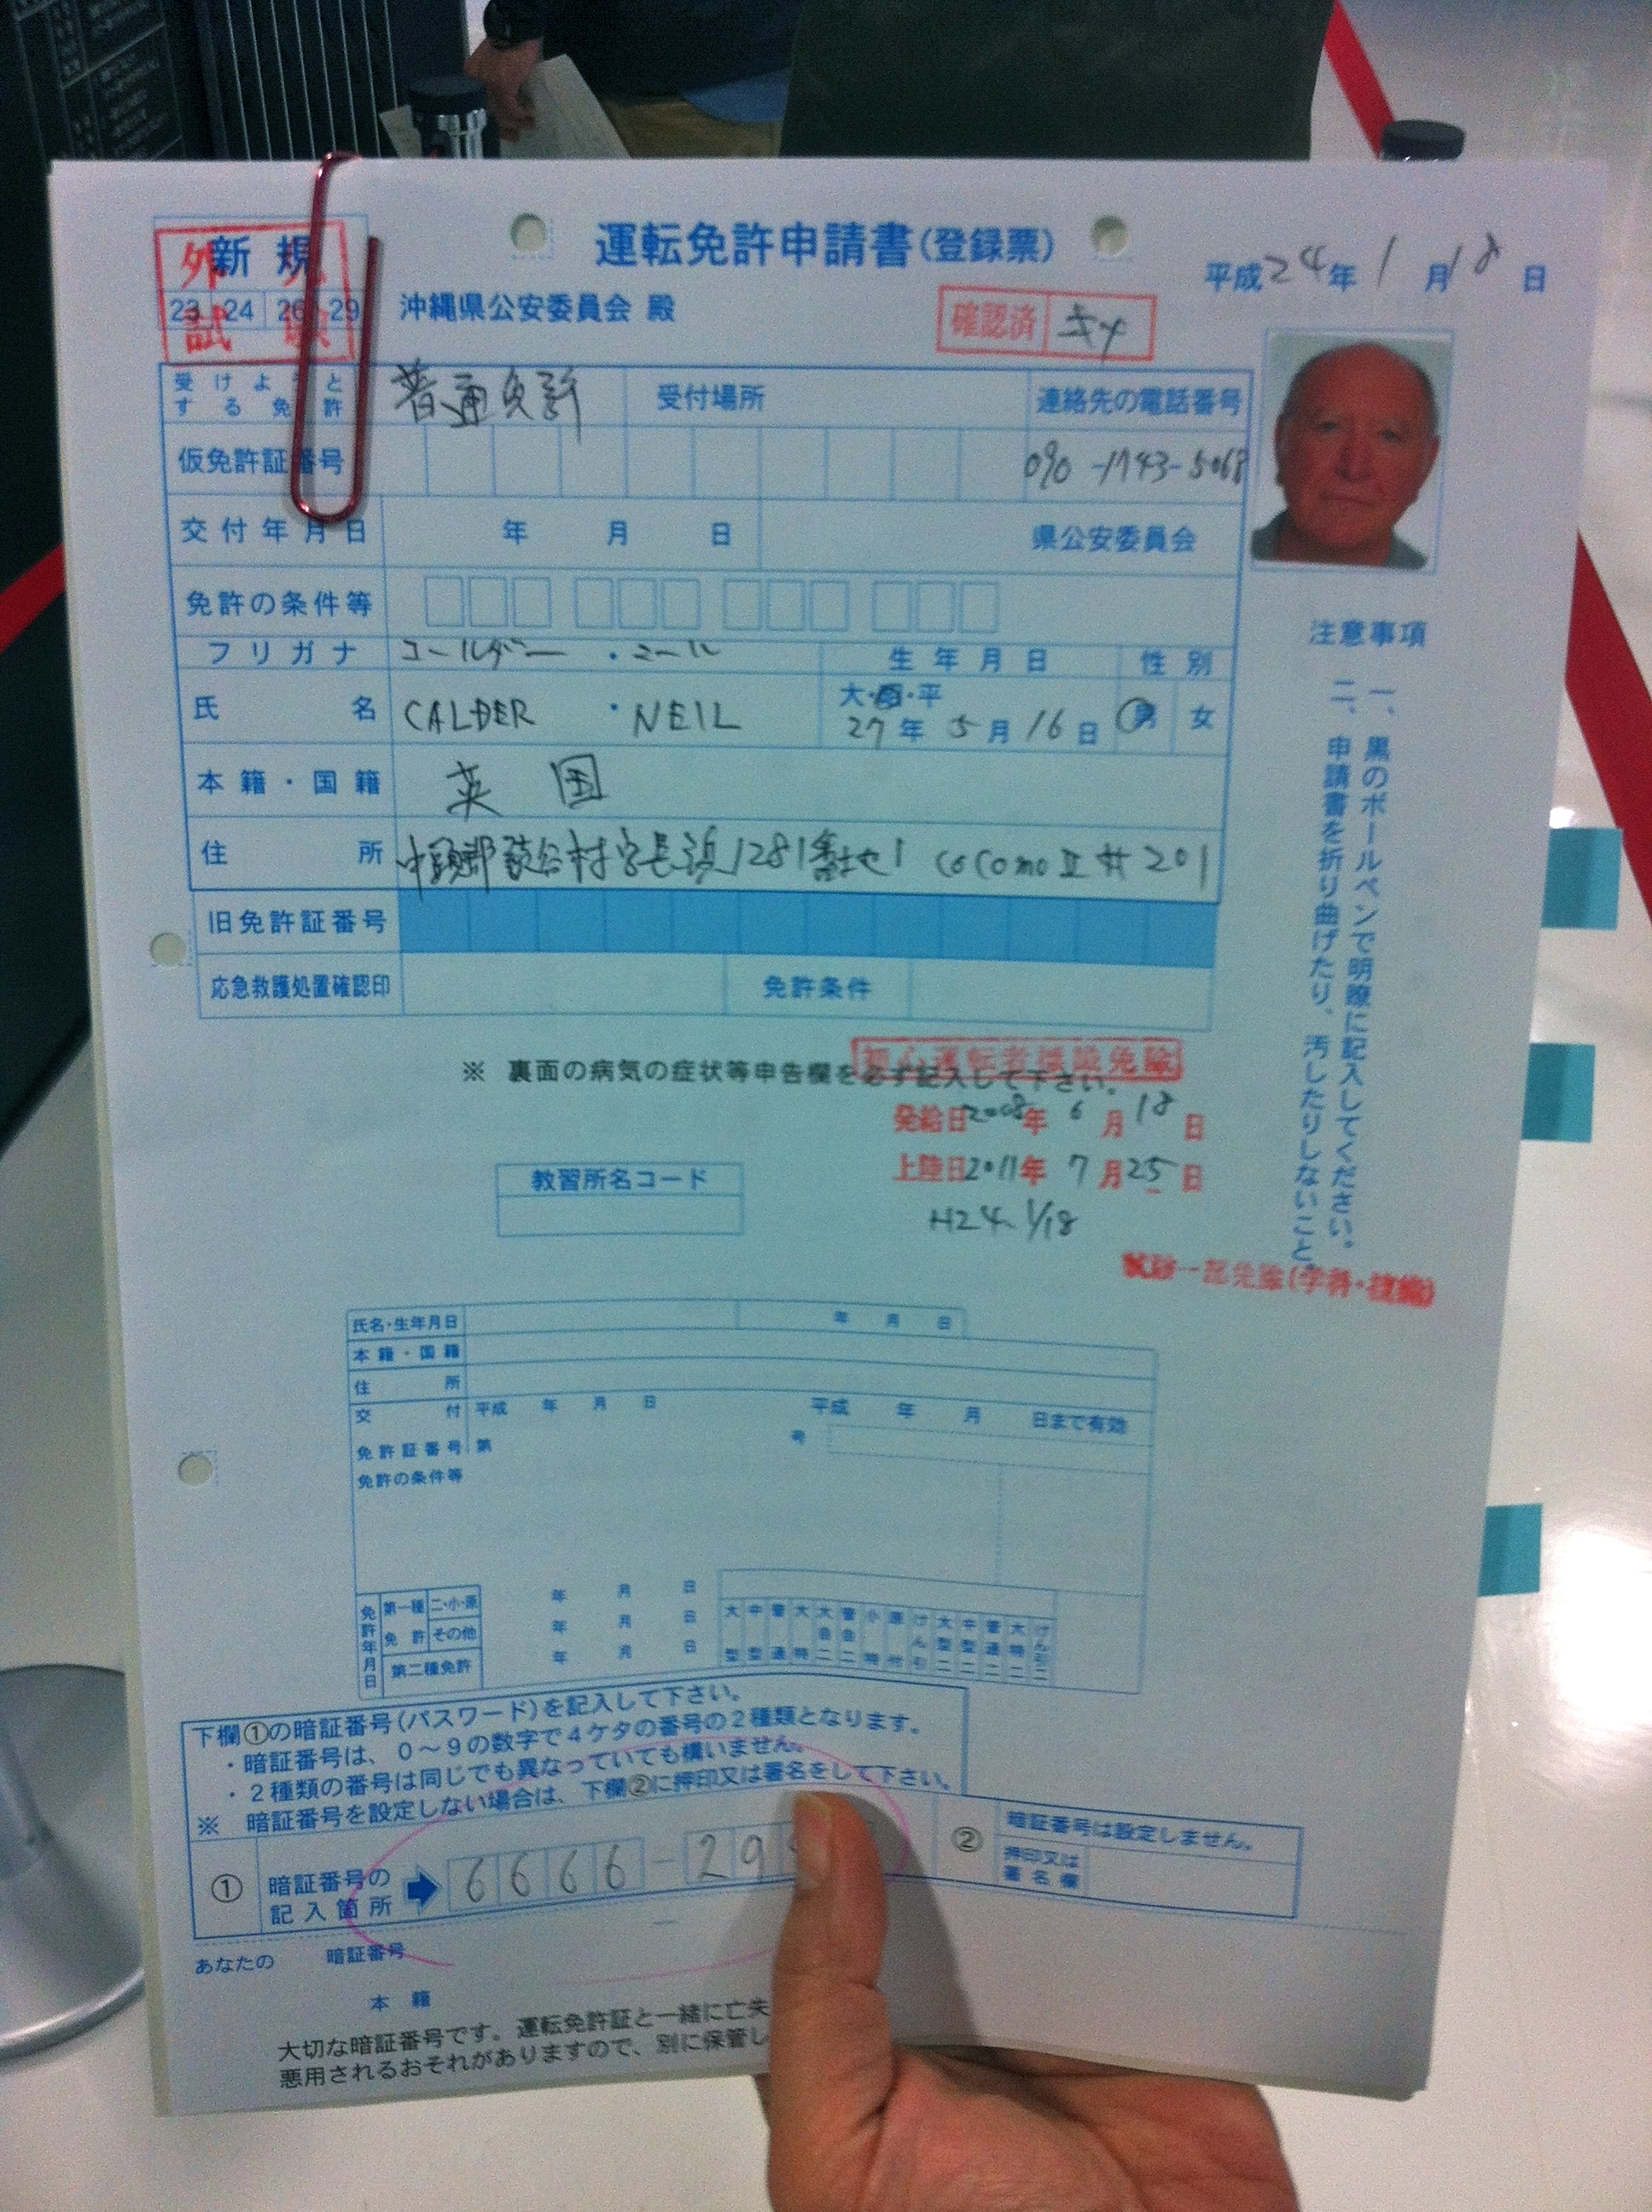 新規
外 試験
23 24 26 29
運転免許申請書(登録票)
平成24年1月18日
沖縄県公安委員会 殿
確認済
受けようとする免許 普通免許 受付場所 連絡先の電話番号
仮免許証番号 090-1743-5068
交付年月日 年 月 日 県公安委員会
免許の条件等
フリガナ コールダー・ニール 生年月日 性別
氏名 CALDER・NEIL 大・昭・平 27年5月16日 男 女
本籍・国籍 英国
住所 中頭郡読谷村字長浜1281番地1 COCOMOⅡ#201
旧免許証番号
応急救護処置確認印 免許条件
注意事項
一、黒のボールペンで明瞭に記入してください。
二、申請書を折り曲げたり、汚したりしないこと。
※ 裏面の病気の症状等申告欄を必ず記入して下さい。
初心運転者標識免除
発給日2008年6月18日
上陸日2011年7月25日
H24.1/18
教習所名コード
試験一部免除(学科・技能)
氏名・生年月日 年 月 日
本籍・国籍
住所
交付 平成 年 月 日 平成 年 月 日まで有効
免許証番号 第 号
免許の条件等
免許年月日
第一種免許 二・小・原 年 月 日
その他 年 月 日
第二種免許 年 月 日
大型 中型 普通 大特 大自二 普自二 小特 原付 けん引 大型二 中型二 普通二 大特二 けん引二
下欄①の暗証番号(パスワード)を記入して下さい。
・暗証番号は、0〜9の数字で4ケタの番号の2種類となります。
・2種類の番号は同じでも異なっていても構いません。
※ 暗証番号を設定しない場合は、下欄②に押印又は署名をして下さい。
① 暗証番号の記入箇所 6666-29
② 暗証番号は設定しません。
押印又は署名欄
あなたの 暗証番号
本籍
大切な暗証番号です。運転免許証と一緒に亡失
悪用されるおそれがありますので、別に保管し